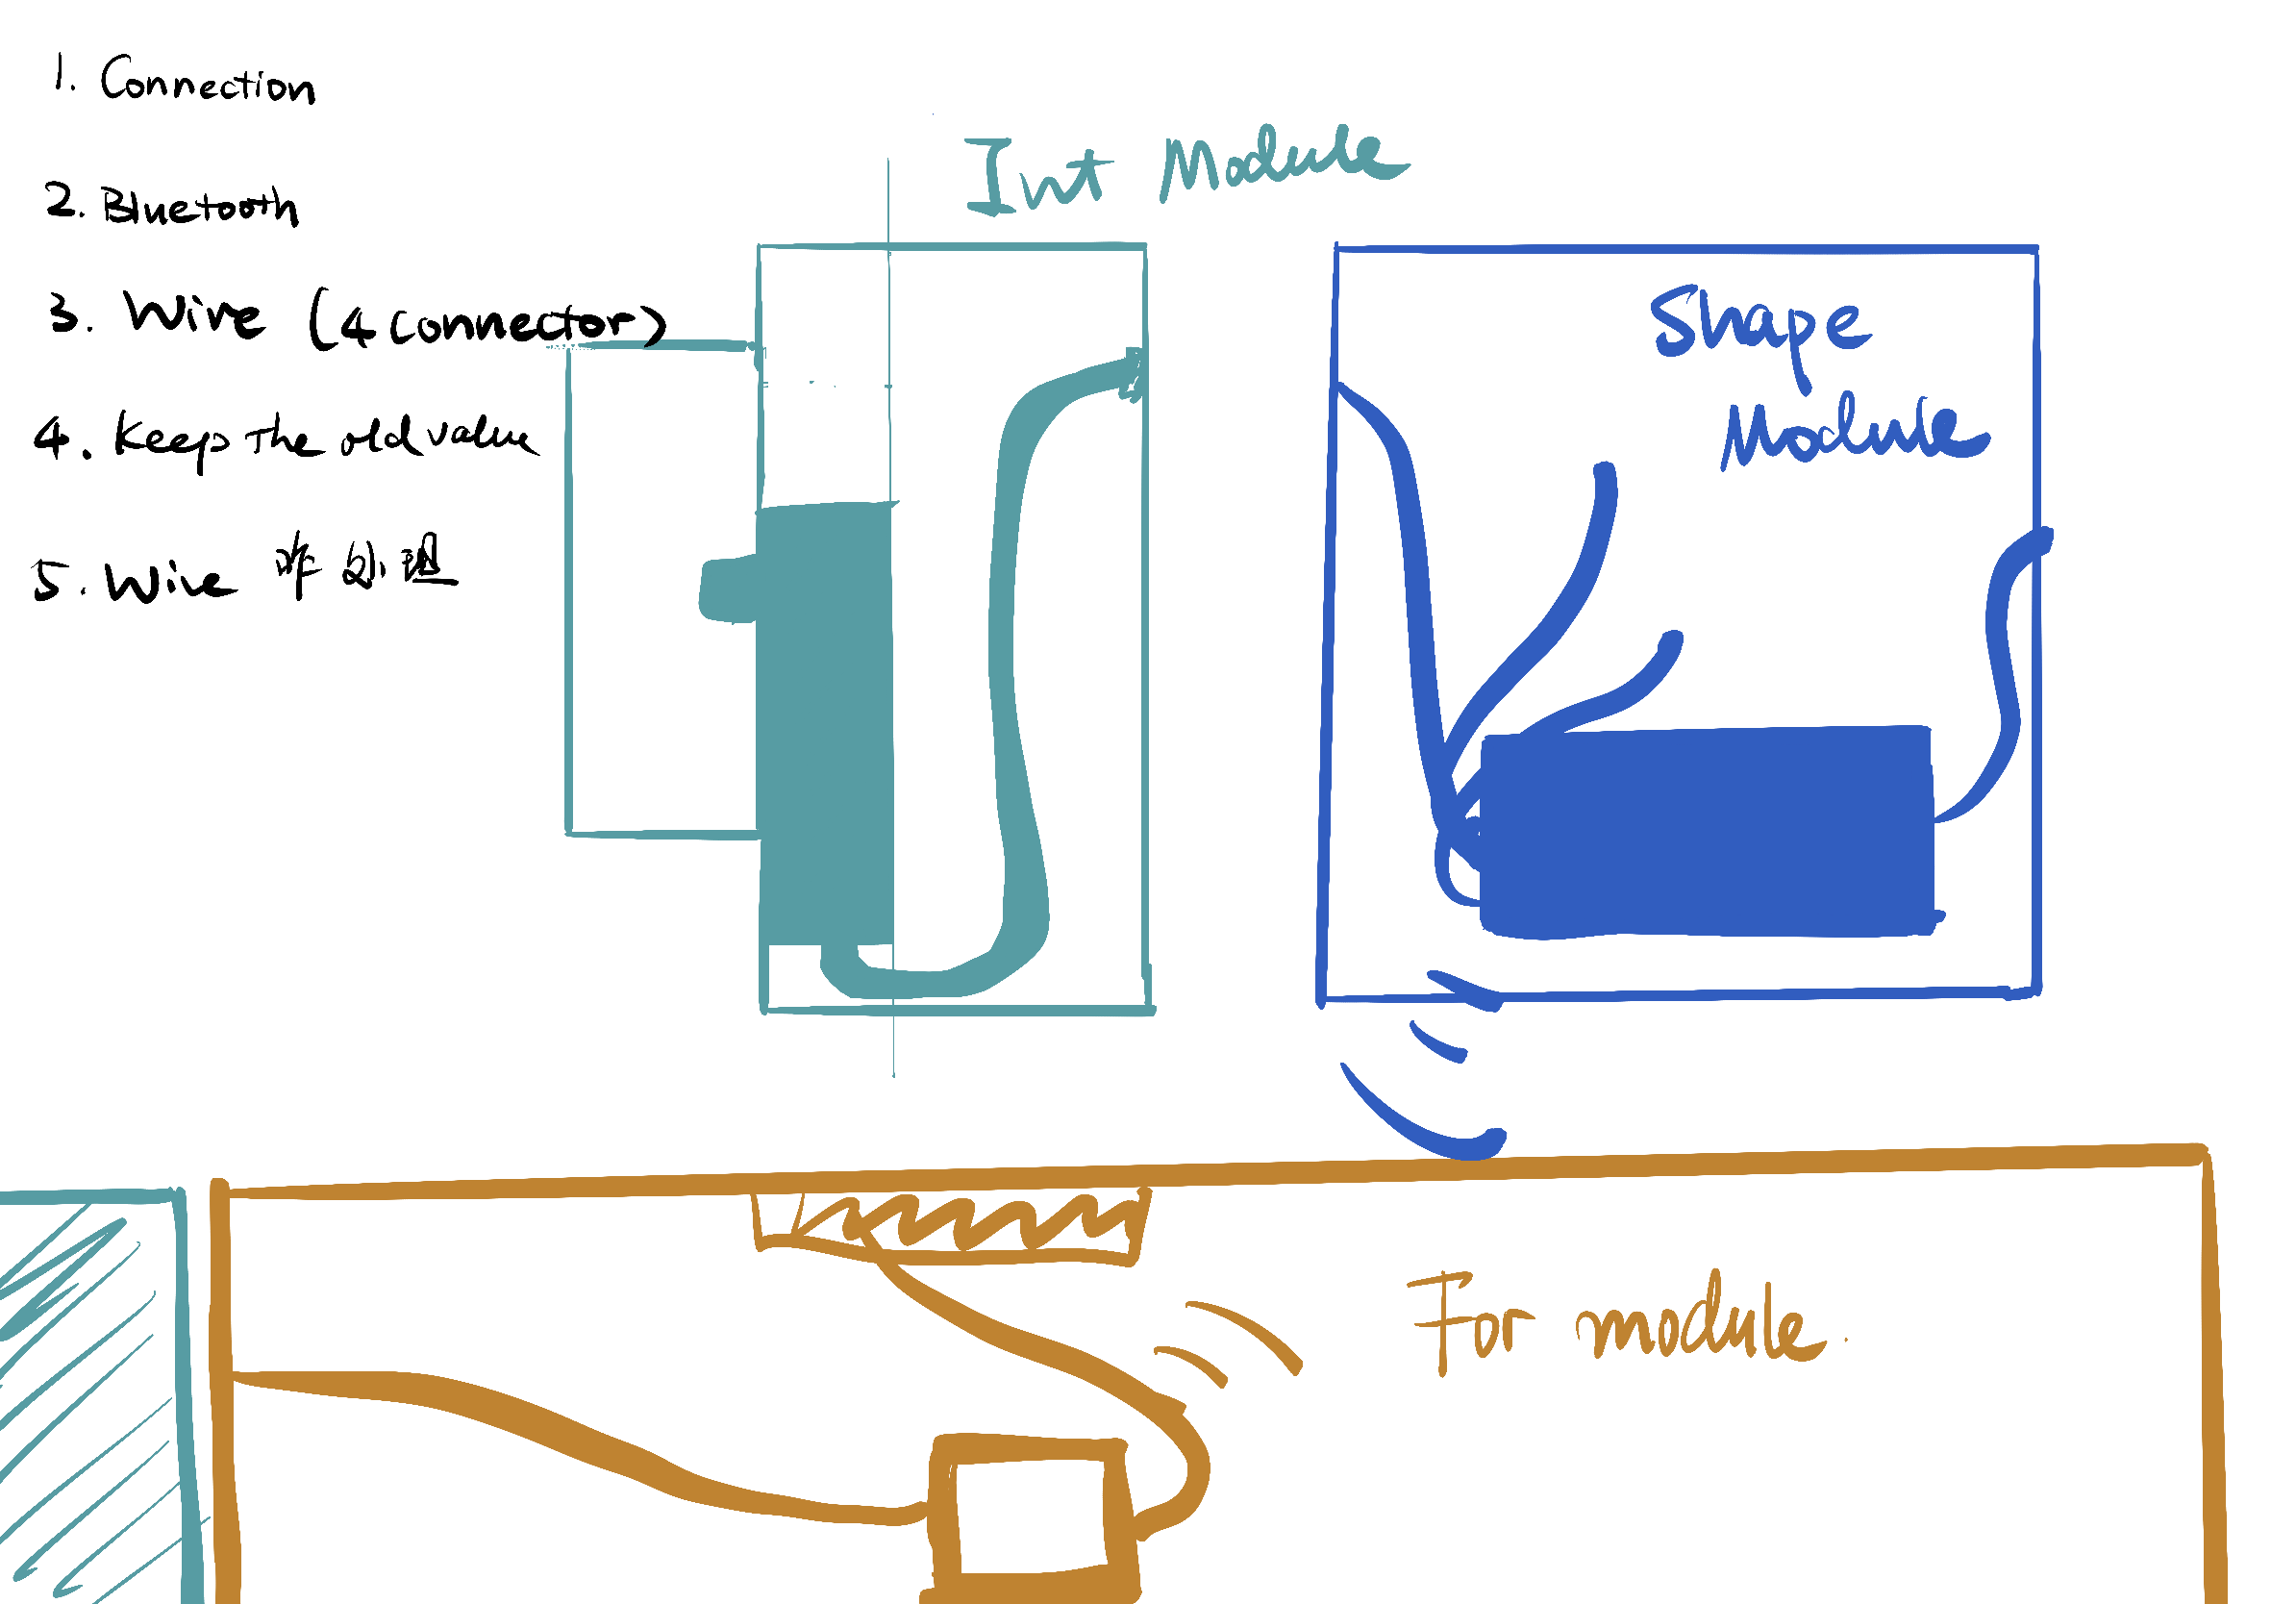 1. Connection
2. Bluetooth
3. Wire (4 connector)
4. Keep The old value
5. Wire 咋处理
Int Module
Shape
Module
For module.